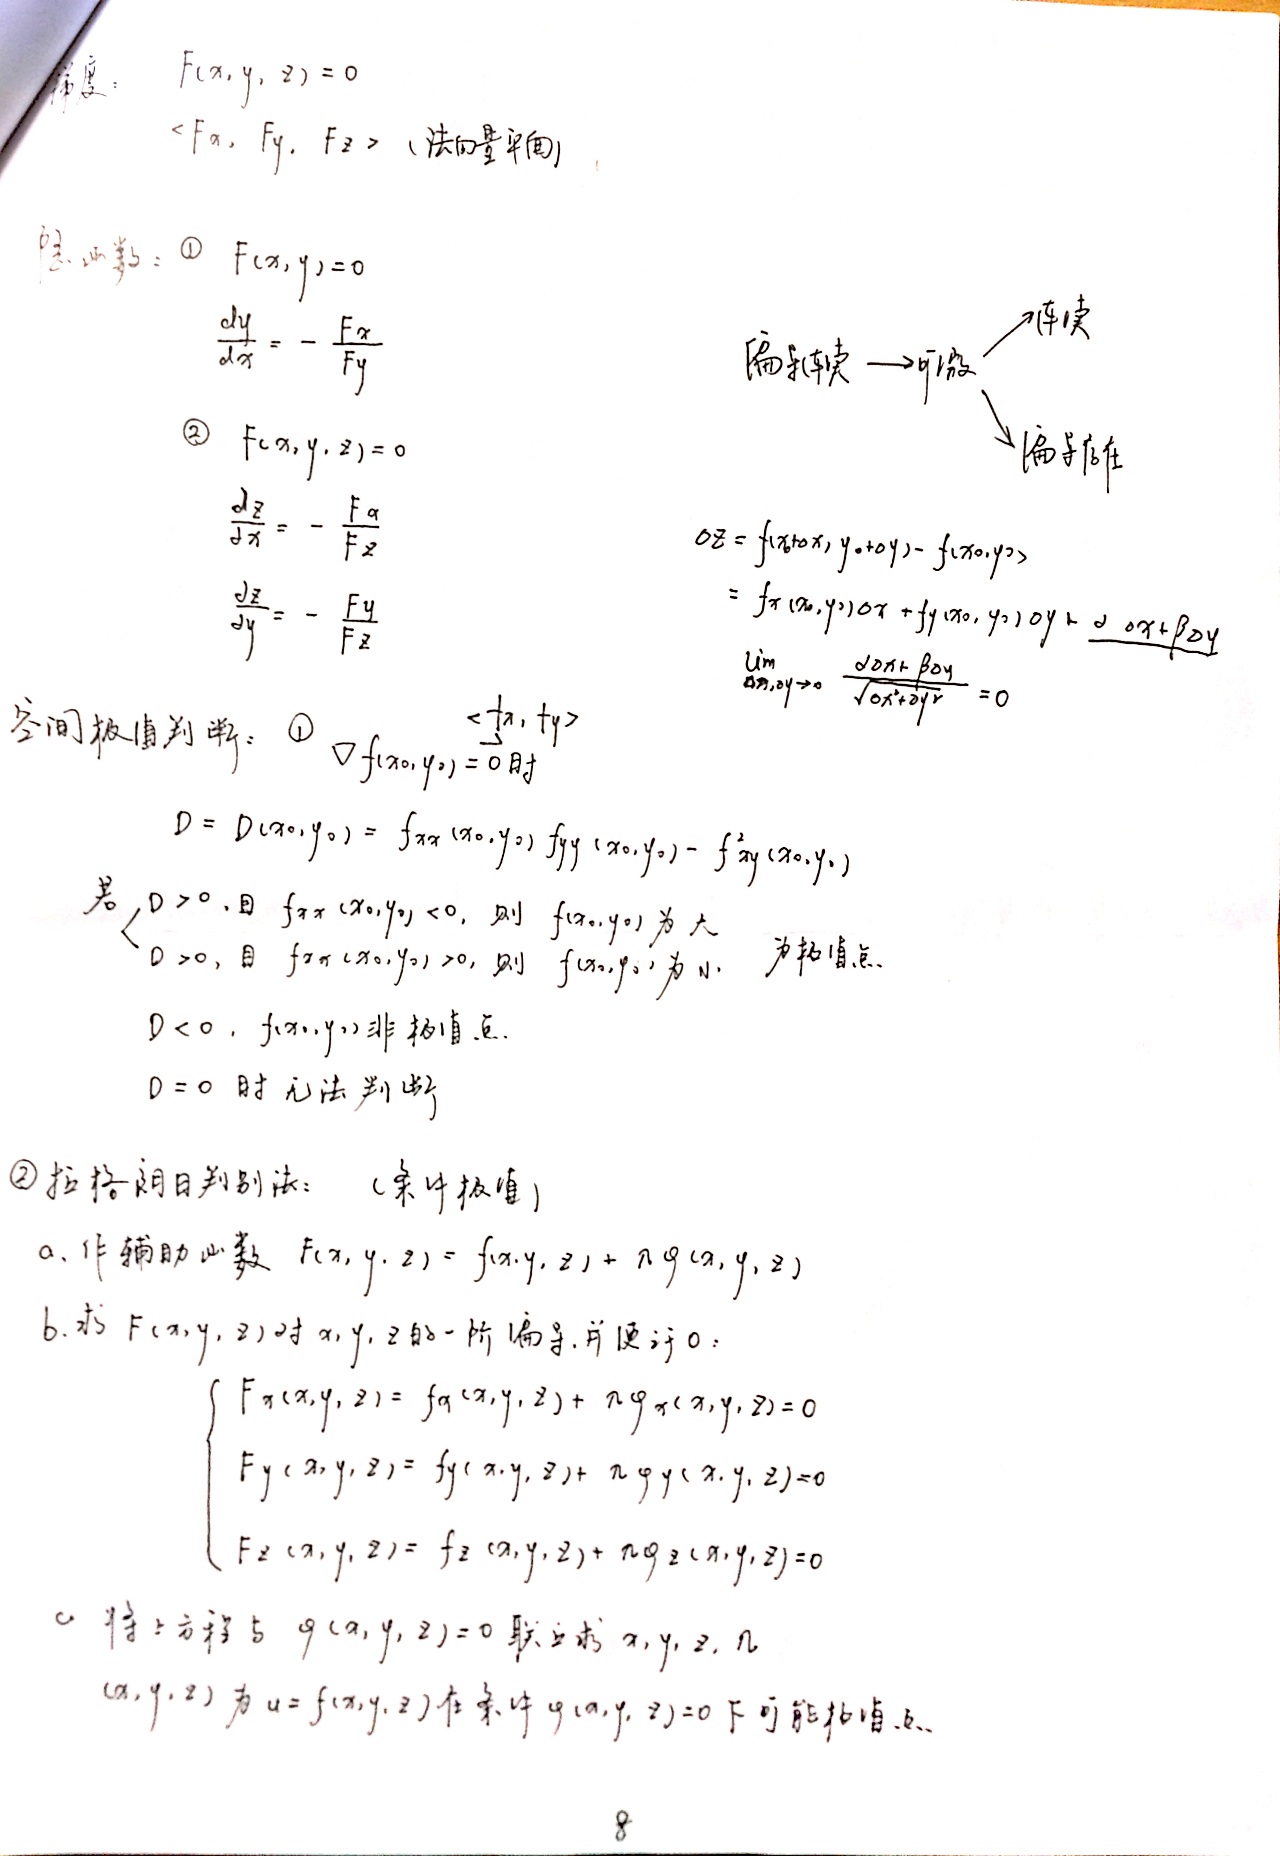 梯度: F(x, y, z) = 0
<Fx, Fy, Fz> (法向量平面)
隐函数: ① F(x, y) = 0
dy/dx = - Fx/Fy
② F(x, y, z) = 0
∂z/∂x = - Fx/Fz
∂z/∂y = - Fy/Fz
偏导连续 → 可微
↗ 连续
↘ 偏导存在
Δz = f(x₀+Δx, y₀+Δy) - f(x₀, y₀)
= fx(x₀, y₀)Δx + fy(x₀, y₀)Δy + αΔx + βΔy
lim Δx,Δy→0 (αΔx + βΔy)/√(Δx²+Δy²) = 0
空间极值判断: ① ∇f(x₀, y₀) = 0 时
<fx, fy>
D = D(x₀, y₀) = fxx(x₀, y₀) fyy(x₀, y₀) - f²xy(x₀, y₀)
若 D > 0, 且 fxx(x₀, y₀) < 0, 则 f(x₀, y₀) 为大
D > 0, 且 fxx(x₀, y₀) > 0, 则 f(x₀, y₀) 为小. 为极值点.
D < 0, f(x₀, y₀) 非极值点.
D = 0 时 无法判断
② 拉格朗日判别法: (条件极值)
a. 作辅助函数 F(x, y, z) = f(x, y, z) + λφ(x, y, z)
b. 求 F(x, y, z) 对 x, y, z 的一阶偏导, 并使之于 0:
Fx(x, y, z) = fx(x, y, z) + λφx(x, y, z) = 0
Fy(x, y, z) = fy(x, y, z) + λφy(x, y, z) = 0
Fz(x, y, z) = fz(x, y, z) + λφz(x, y, z) = 0
c 将上方程与 φ(x, y, z) = 0 联立求 x, y, z, λ
(x, y, z) 为 u = f(x, y, z) 在条件 φ(x, y, z) = 0 下可能极值点.
8